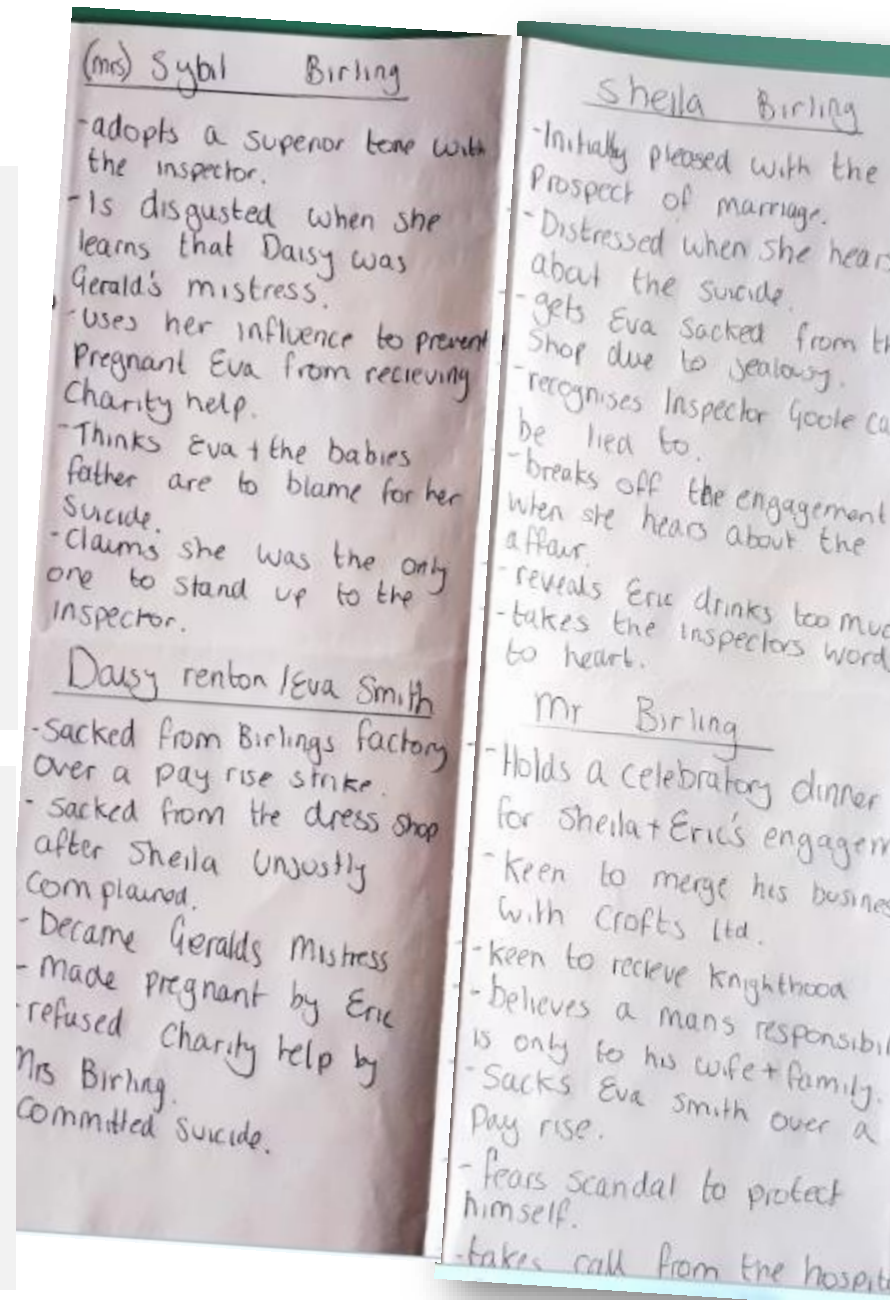 (mrs) Sybil Birling
-adopts a superior tone with
the inspector.
-Is disgusted when she
learns that Daisy was
Gerald's mistress.
-uses her influence to prevent
pregnant Eva from recieving
Charity help.
-Thinks Eva + the babies
father are to blame for her
Suicide.
-Claims she was the only
one to stand up to the
inspector.
Daisy renton /Eva Smith
-Sacked from Birlings factory
over a pay rise strike.
- Sacked from the dress shop
after Sheila unjustly
complained.
-became Geralds Mistress
-made pregnant by Eric
-refused Charity help by
Mrs Birling.
committed suicide.
Sheila Birling
-Initially pleased with the
Prospect of marriage.
-Distressed when she hears
about the suicide.
-gets Eva Sacked from th
Shop due to jealousy.
-recognises Inspector Goole ca
be lied to.
-breaks off the engagement
when she hears about the
affair.
-reveals Eric drinks too muc
-takes the inspectors word
to heart.
Mr Birling
-Holds a celebratory dinner
for Sheila + Eric's engagem
-Keen to merge his busines
with Crofts Ltd.
-keen to recieve knighthood
-believes a mans responsibil
is only to his wife + family.
-Sacks Eva Smith over a
pay rise.
-fears scandal to protect
himself.
-takes call from the hospit